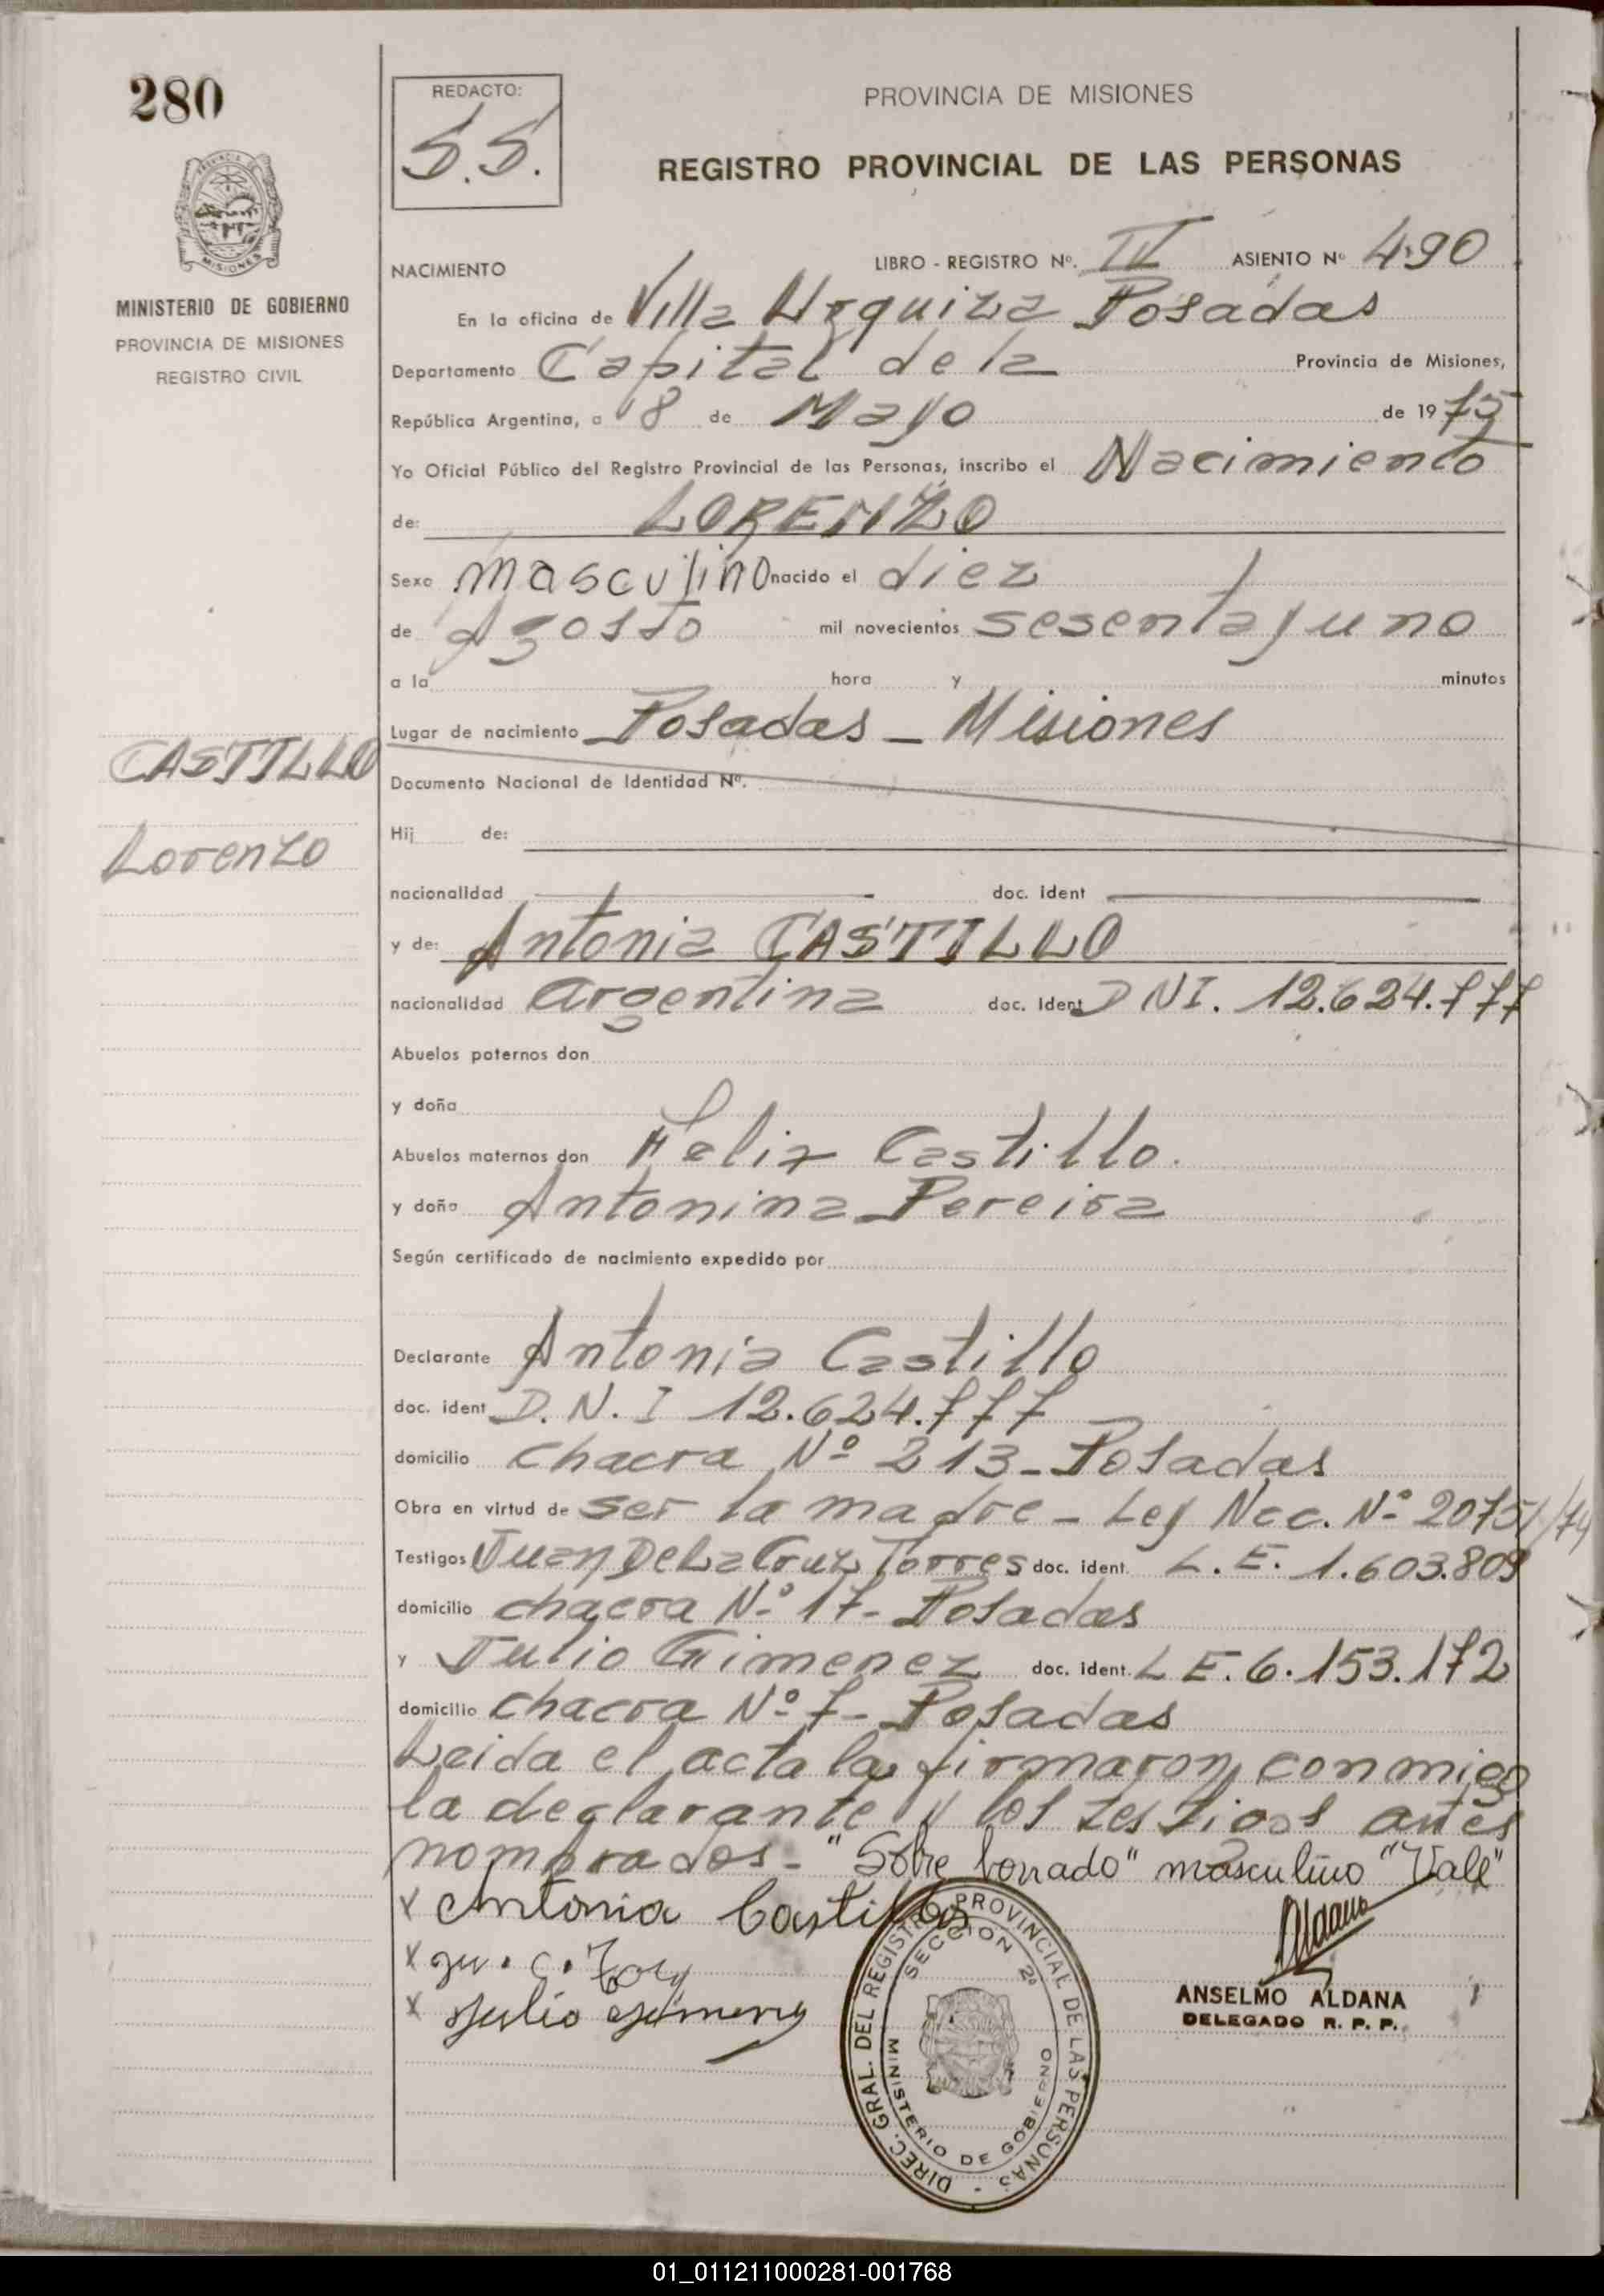 280
REDACTO:
S.S.
PROVINCIA DE MISIONES
REGISTRO PROVINCIAL DE LAS PERSONAS
MINISTERIO DE GOBIERNO
PROVINCIA DE MISIONES
REGISTRO CIVIL
NACIMIENTO LIBRO - REGISTRO Nº. IV ASIENTO Nº 490
En la oficina de Villa Urquiza Posadas
Departamento Capital de la Provincia de Misiones,
República Argentina, a 8 de Mayo de 1975
Yo Oficial Público del Registro Provincial de las Personas, inscribo el Nacimiento
de: LORENZO
Sexo masculino nacido el diez
de Agosto mil novecientos sesenta y uno
a la hora y minutos
Lugar de nacimiento Posadas - Misiones
CASTILLO
Lorenzo
Documento Nacional de Identidad Nº.
Hij de:
nacionalidad doc. ident
y de: Antonia CASTILLO
nacionalidad argentina doc. Ident DNI. 12.624.777
Abuelos paternos don
y doña
Abuelos maternos don Felix Castillo.
y doña Antonina Pereira
Según certificado de nacimiento expedido por
Declarante Antonia Castillo
doc. ident D.N.I 12.624.777
domicilio chacra Nº 213 - Posadas
Obra en virtud de ser la madre - Ley Nac. Nº 20751/74
Testigos Juan De La Cruz Torres doc. ident. L.E. 1.603.809
domicilio chacra Nº 17 - Posadas
y Julio Gimenez doc. ident. L E. 6.153.172
domicilio chacra Nº 7 - Posadas
Leida el acta la firmaron conmigo
la declarante y los testigos antes
nombrados - "Sobre borrado" masculino "Vale"
x Antonia Castillo
x
x Julio
Aldana
ANSELMO ALDANA
DELEGADO R. P. P.
DIREC. GRAL. DEL REGISTRO PROVINCIAL DE LAS PERSONAS -
SECCION 2ª
MINISTERIO DE GOBIERNO
01_011211000281-001768